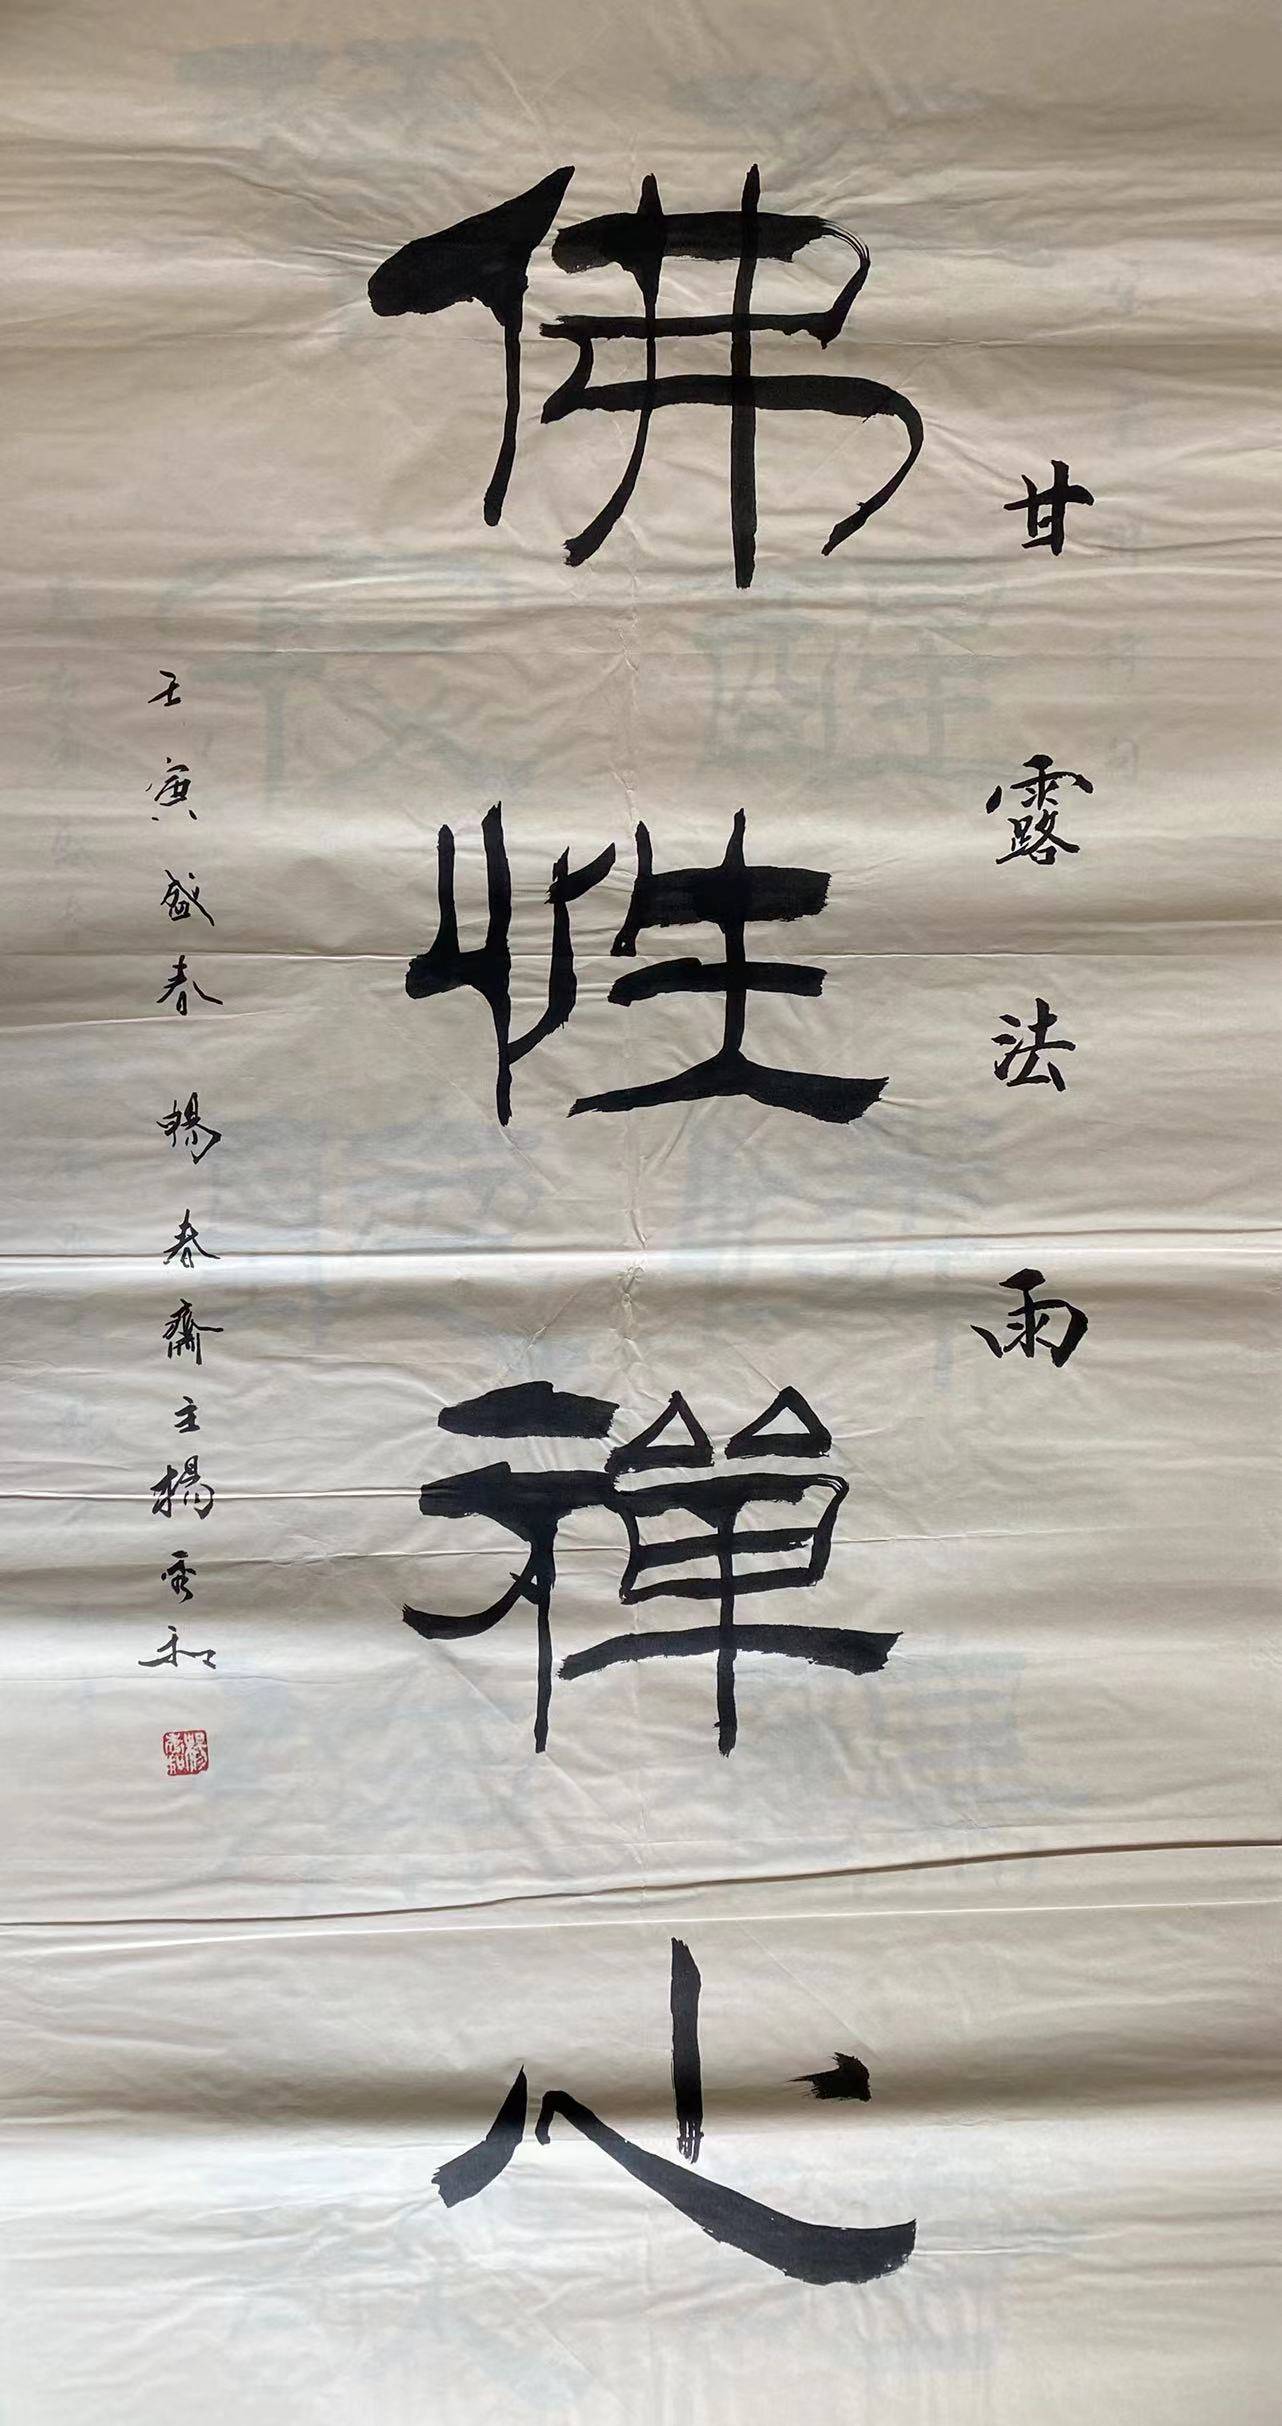 甘露法雨
佛性禅心
壬寅盛春 暢春齋主楊秀和
楊秀和